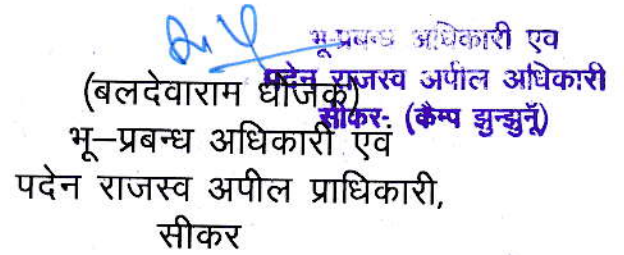 भू-प्रबन्ध अधिकारी एव
पदेन राजस्व अपील अधिकारी
सीकर- (कैम्प झुन्झुनूँ)
(बलदेवाराम धोजक)
भू–प्रबन्ध अधिकारी एवं
पदेन राजस्व अपील प्राधिकारी,
सीकर